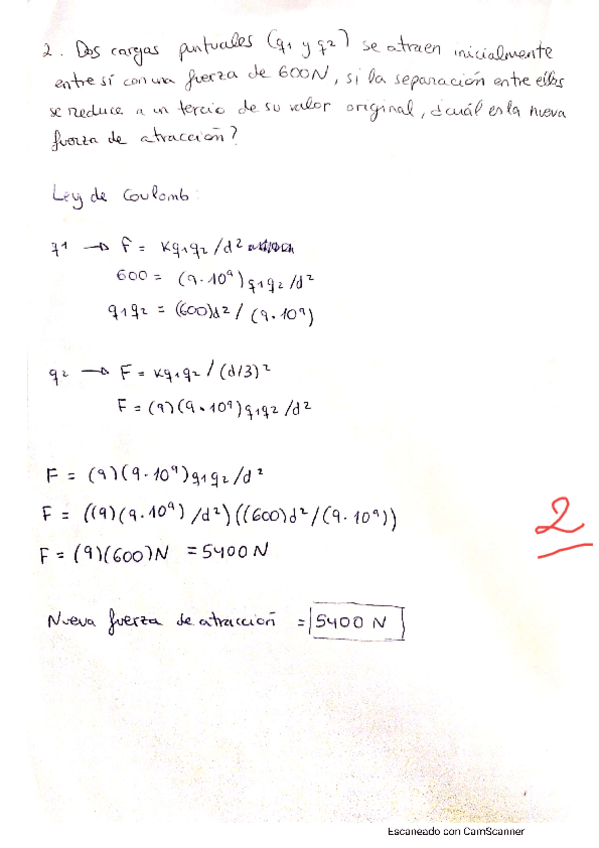 2. Dos cargas puntuales (q1 y q2) se atraen inicialmente
entre sí con una fuerza de 600N, si la separación entre ellas
se reduce a un tercio de su valor original, ¿cuál es la nueva
fuerza de atracción?
Ley de Coulomb:
q1 → F = Kq1q2/d²
600 = (9·10⁹)q1q2/d²
q1q2 = (600)d²/(9·10⁹)
q2 → F = Kq1q2/(d/3)²
F = (9)(9·10⁹)q1q2/d²
F = (9)(9·10⁹)q1q2/d²
F = ((9)(9·10⁹)/d²)((600)d²/(9·10⁹))
F = (9)(600)N = 5400 N
2
Nueva fuerza de atracción = 5400 N
Escaneado con CamScanner